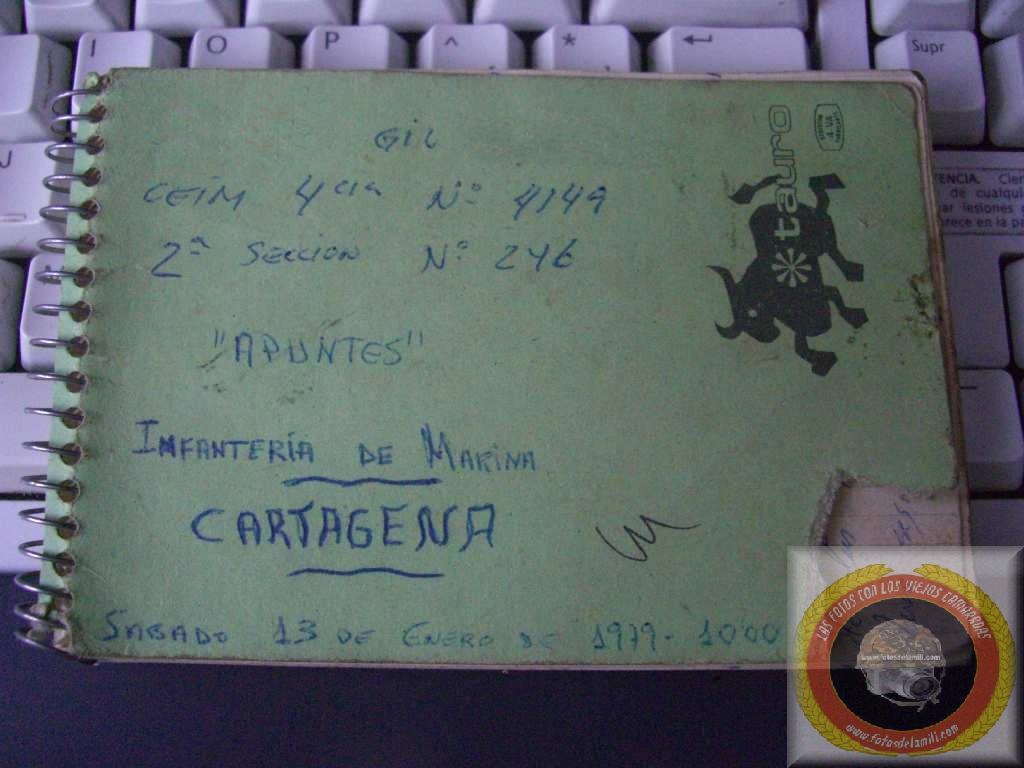 I O P ^ * Supr
GIL
CEIM 4ª Cía Nº 4149
2ª SECCION Nº 246
"APUNTES"
INFANTERÍA DE MARINA
CARTAGENA
SABADO 13 DE ENERO DE 1979- 10'00
tauro
TENCIA. Cier
de cualqui
ar lesiones
arece en la pa
LAS FOTOS CON LOS VIEJOS CAMARADAS
www.fotosdelamili.com
www.fotosdelamili.com